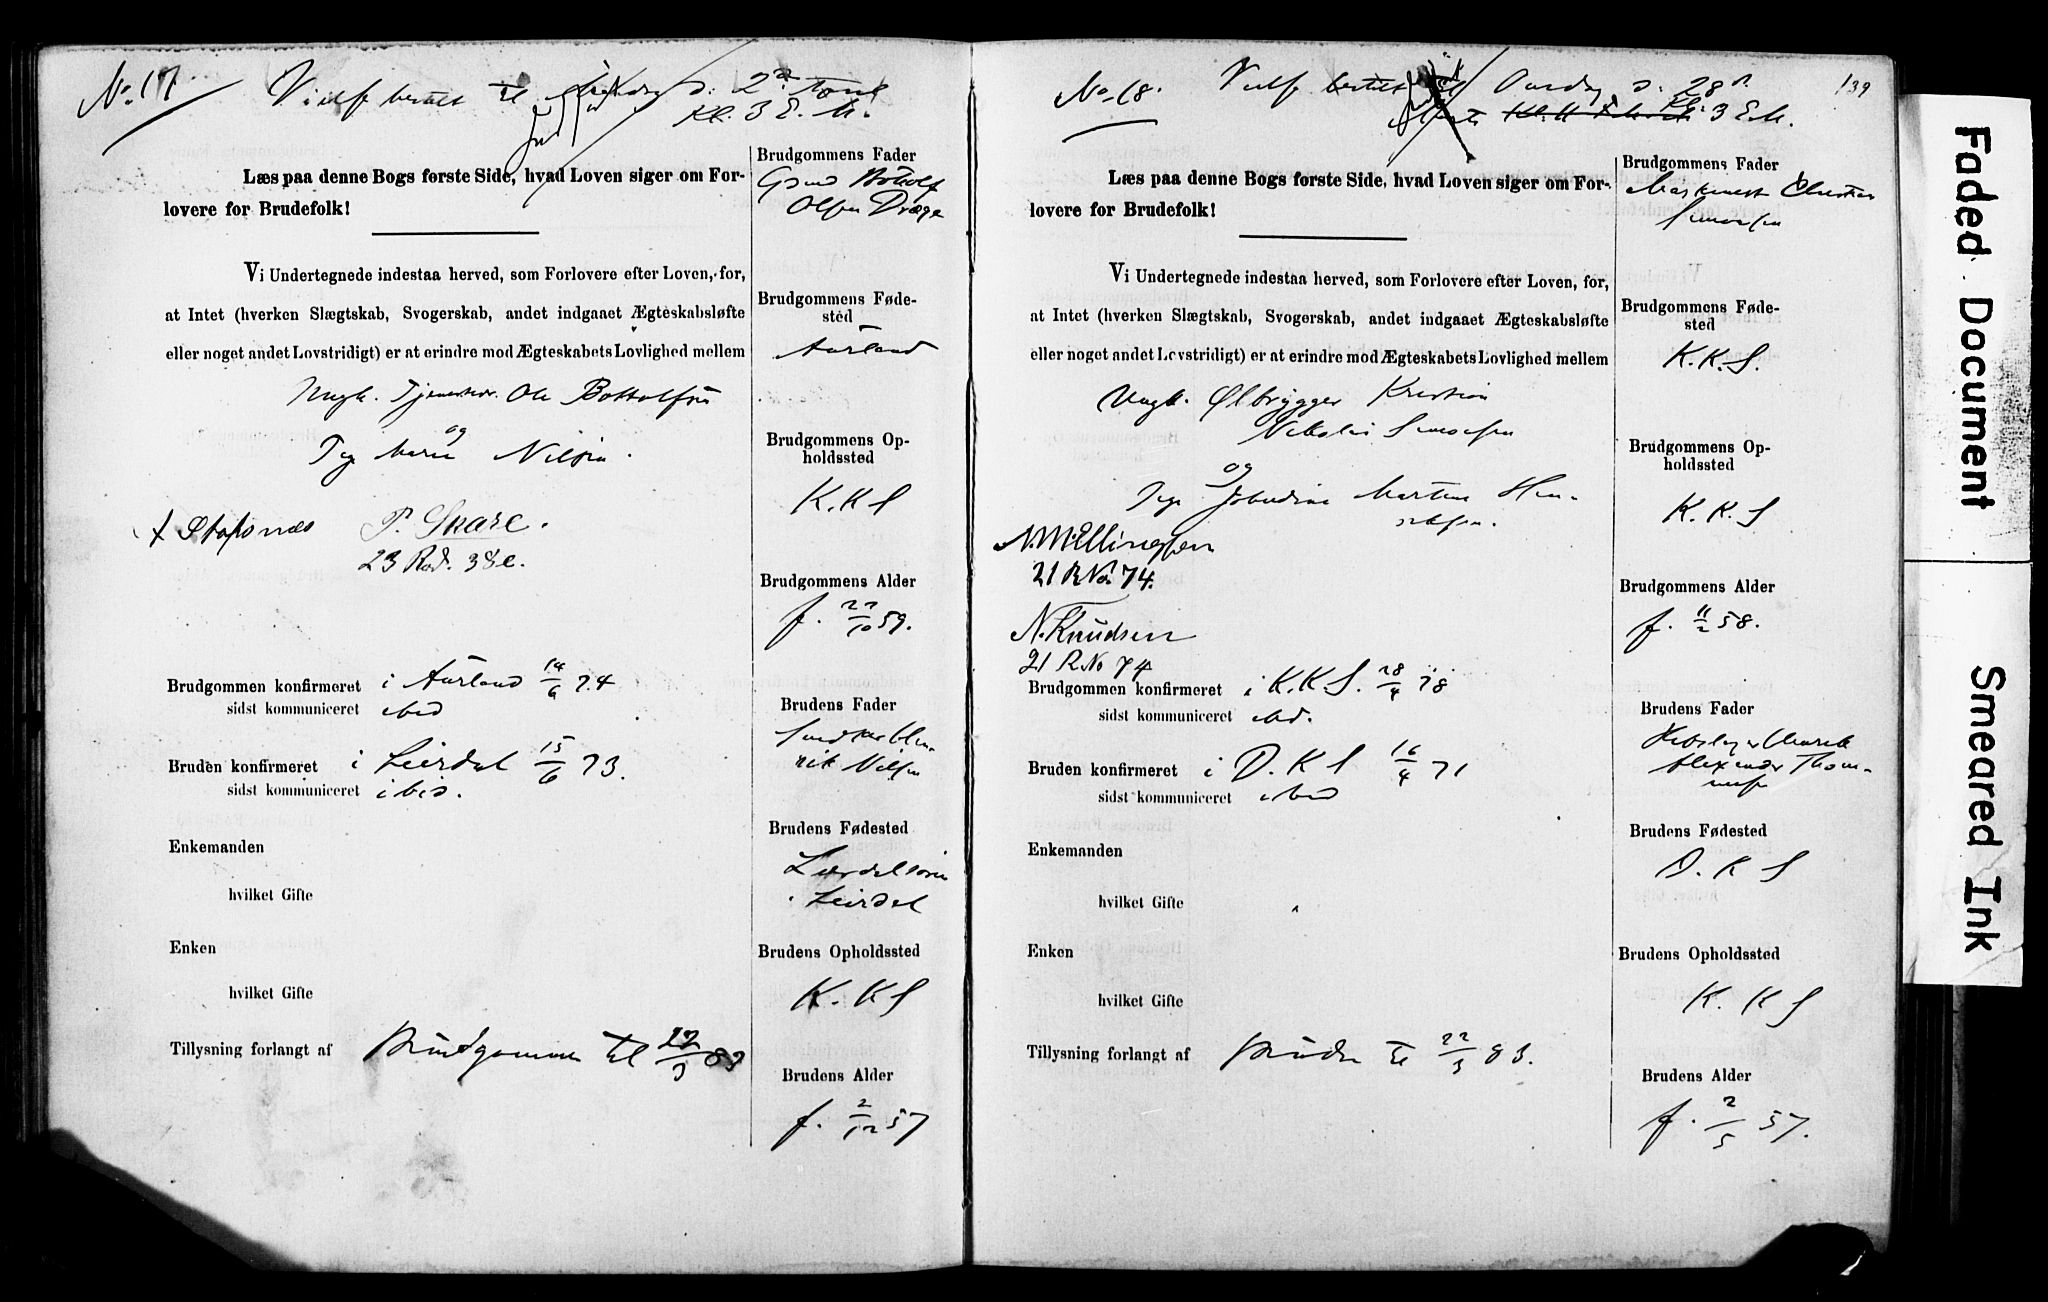 No. 17
Vielse bestilt til d. 2den
Kl. 3 E. M.
Læs paa denne Bogs første Side, hvad Loven siger om For-
lovere for Brudefolk!
Vi Undertegnede indestaa herved, som Forlovere efter Loven, for,
at Intet (hverken Slægtskab, Svogerskab, andet indgaaet Ægteskabsløfte
eller noget andet Lovstridigt) er at erindre mod Ægteskabets Lovlighed mellem
Ungk. Ole Bottolfsen
og
Pige Marie Nilsen.
P. Snare.
23 Rod. 38 c.
Brudgommen konfirmeret i Aurland 14/6 74
sidst kommuniceret ibid
Bruden konfirmeret i Leirdal 15/6 73.
sidst kommuniceret ibid.
Enkemanden
hvilket Gifte
Enken
hvilket Gifte
Tillysning forlangt af Brudgommen til 22/3 83
Brudgommens Fader
Gmd Botolf
Olsen Dræge
Brudgommens Føde-
sted
Aurland
Brudgommens Op-
holdssted
K. K S
Brudgommens Alder
f. 22/10 59.
Brudens Fader
Hen-
rik Nilsen
Brudens Fødested
Lærdalsøren
i Leirdal
Brudens Opholdssted
K. K S
Brudens Alder
f. 2/12 57
139
No. 18.
Vielse bestilt til Onsdag d. 28d.
Marts Kl. 3 E. M.
Læs paa denne Bogs første Side, hvad Loven siger om For-
lovere for Brudefolk!
Vi Undertegnede indestaa herved, som Forlovere efter Loven, for,
at Intet (hverken Slægtskab, Svogerskab, andet indgaaet Ægteskabsløfte
eller noget andet Lovstridigt) er at erindre mod Ægteskabets Lovlighed mellem
Ungk. Ølbrygger Kristian
Nikolai Simonsen
og
Pige Martine
N. M. Ellingsen
21 R No 74.
N. Knudsen
21 R No 74
Brudgommen konfirmeret i K. K. S. 28/4 78
sidst kommuniceret ibid.
Bruden konfirmeret i D. K S 16/4 71
sidst kommuniceret ibid
Enkemanden
hvilket Gifte
Enken
hvilket Gifte
Tillysning forlangt af Bruden til 22/3 83.
Brudgommens Fader
Maskinmest Christian
Simonsen
Brudgommens Føde-
sted
K. K. S.
Brudgommens Op-
holdssted
K. K. S
Brudgommens Alder
f. 11/2 58.
Brudens Fader
Alexander Thom-
Brudens Fødested
D. K S
Brudens Opholdssted
K. K S
Brudens Alder
f. 2/5 57.
Faded Document
Smeared Ink